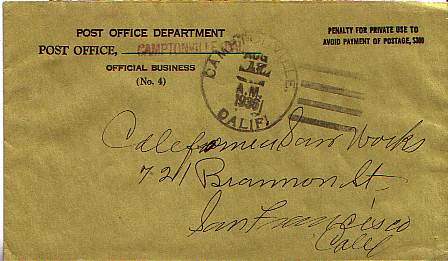 POST OFFICE DEPARTMENT
POST OFFICE, CAMPTONVILLE
OFFICIAL BUSINESS
(No. 4)
PENALTY FOR PRIVATE USE TO
AVOID PAYMENT OF POSTAGE, $300
CAMPTONVILLE
AUG
A.M.
1936
CALIF.
California Saw Works
721 Brannon St.
San Francisco
Calif